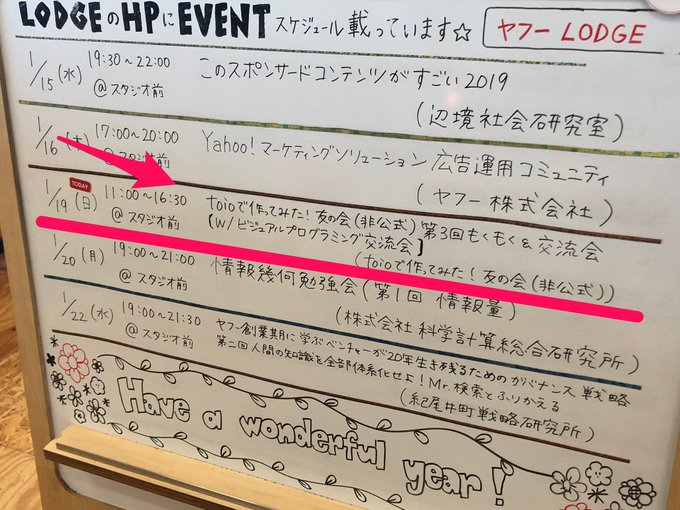 LODGEのHPにEVENTスケジュール載っています☆ ヤフー LODGE
1/15(水) 19:30~22:00 このスポンサードコンテンツがすごい2019
@スタジオ前 (辺境社会研究室)
1/16(木) 17:00~20:00 Yahoo!マーケティングソリューション 広告運用コミュニティ
@スタジオ前 (ヤフー株式会社)
TODAY
1/19(日) 11:00~16:30 toioで作ってみた!友の会(非公式)第3回もくもく&交流会
@スタジオ前 【W/ビジュアルプログラミング交流会】
(toioで作ってみた!友の会(非公式))
1/20(月) 19:00~21:00 情報幾何勉強会(第1回 情報量)
@スタジオ前 (株式会社 科学計算総合研究所)
1/22(水) 19:00~21:30 ヤフー創業期に学ぶベンチャーが20年生き残るためのガバナンス戦略
@スタジオ前 第二回 人間の知識を全部体系化せよ!Mr.検索とふりかえる
(紀尾井町戦略研究所)
Have a wonderful year!